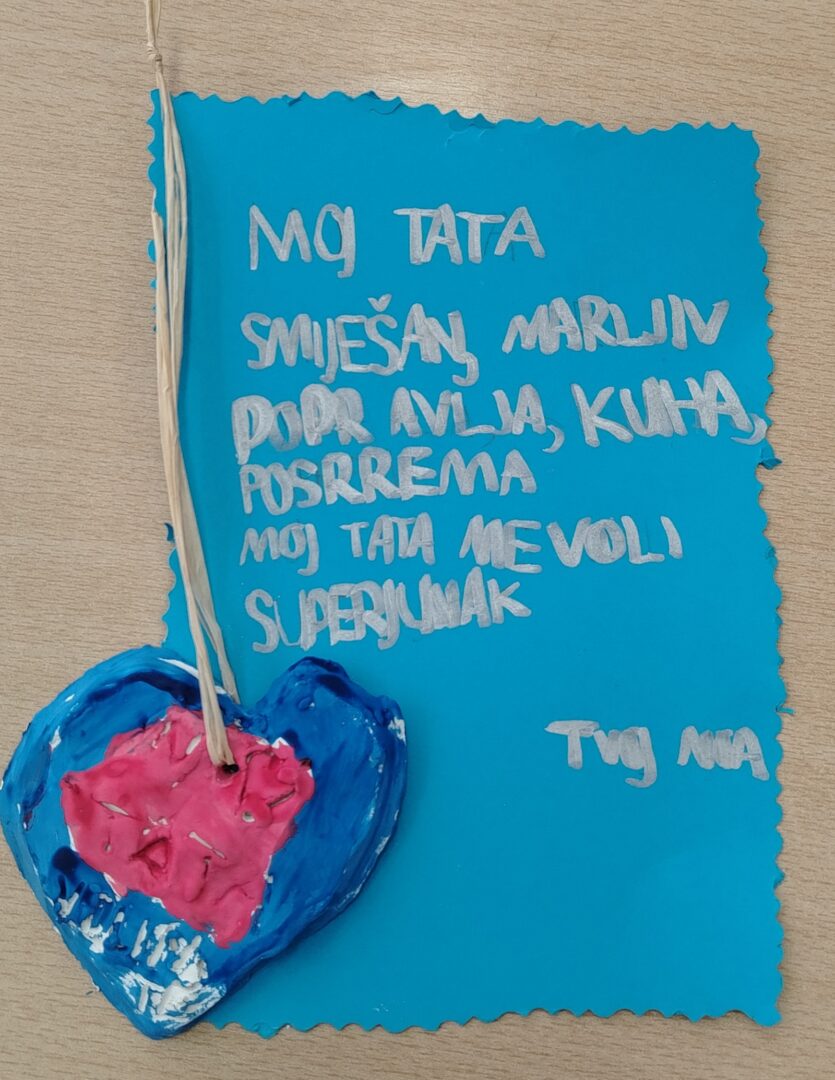 MOJ TATA
SMIJEŠAN, MARLJIV
POPRAVLJA, KUHA,
POSRREMA
MOJ TATA ME VOLI
SUPERJUNAK
TVOJ